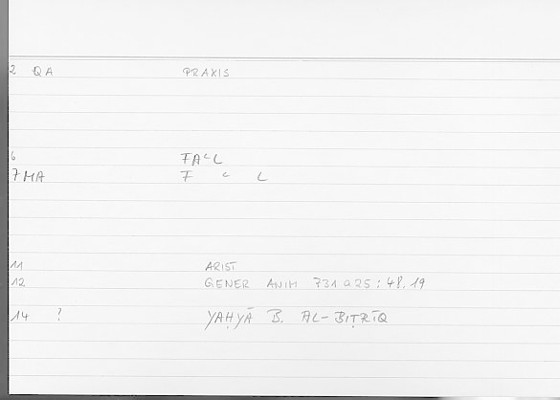 2 QA PRAXIS
6 FAᶜL
7 MA F ᶜ L
11 ARIST
12 GENER ANIM 731 a 25 : 48.19
14 ? YAḤYĀ B. AL-BIṬRĪQ